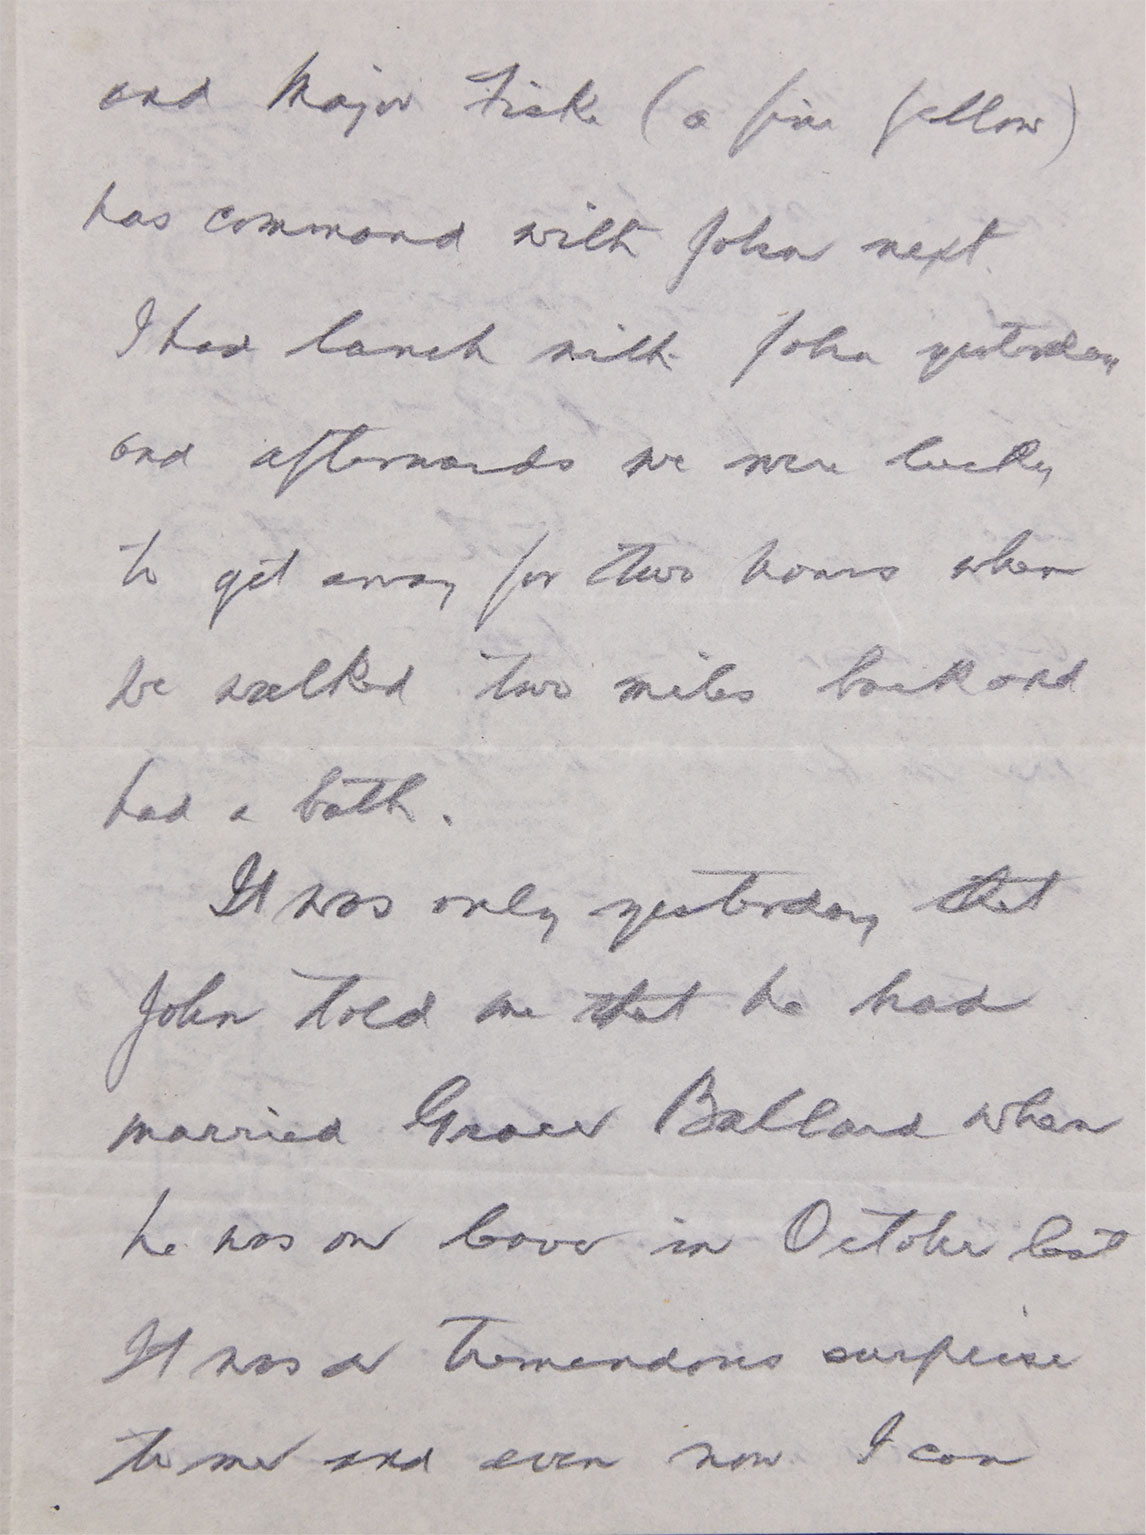 and Major Fiske (a fine fellow)
has command with John next.
I had lunch with John yesterday
and afterwards we were lucky
to get away for two hours when
we walked two miles back and
had a bath.
It was only yesterday that
John told me that he had
married Grace Ballard when
he was on leave in October last
It was a tremendous surprise
to me and even now I can